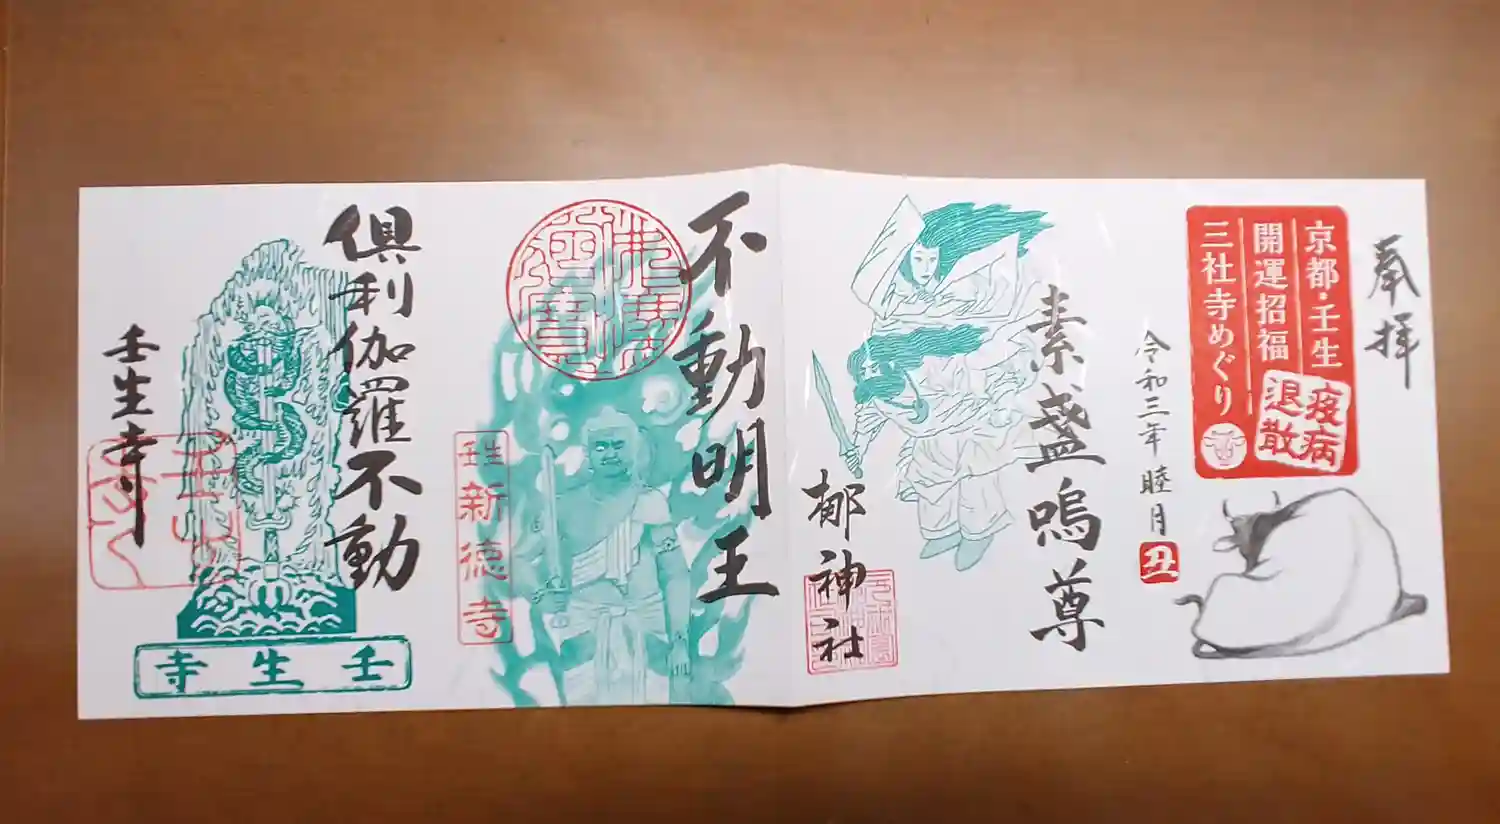 奉拝
京都・壬生
開運招福
三社寺めぐり
疫病
退散
令和三年 睦月
丑
素盞嗚尊
梛神社
不動明王
壬生
新徳寺
倶利伽羅不動
壬生寺
壬生寺